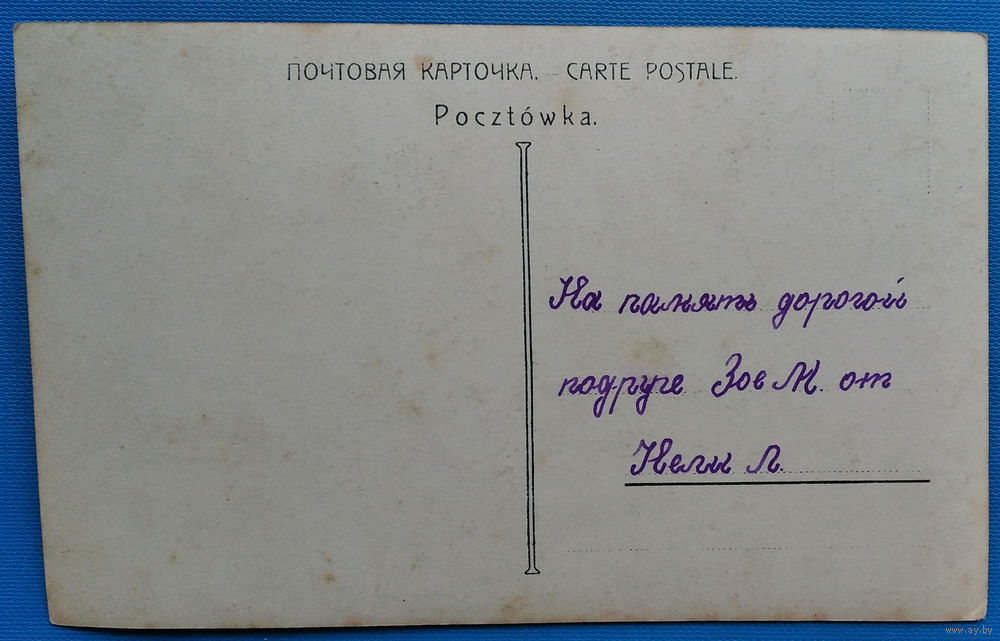 ПОЧТОВАЯ КАРТОЧКА. – CARTE POSTALE.
Pocztówka.
На память дорогой
подруге Зое М. от
Нели Л.
www.ay.by